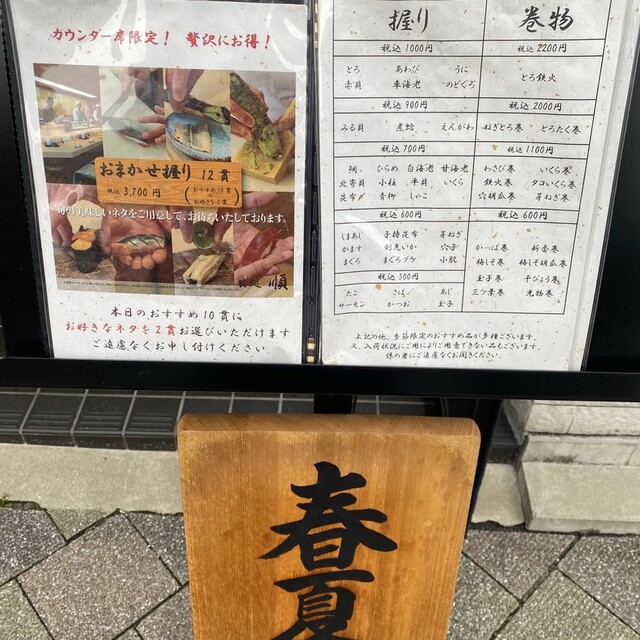 カウンター席限定！ 贅沢にお得！
おまかせ握り 12貫
税込 3,700円
おすすめ10貫
お好きな2貫
旬の美味しいネタをご用意して、お待ちいたしております。
順
本日のおすすめ10貫に
お好きなネタを2貫お選びいただけます
ご遠慮なくお申し付けください
握り
税込 1000円
とろ あわび うに
赤貝 車海老 のどくろ
税込 900円
みる貝 煮蛤 えんがわ
税込 700円
鯛 ひらめ 白海老 甘海老
北寄貝 小柱 平貝 いくら
昆布〆 青柳 しゃこ
税込 600円
ほあじ 子持昆布 芽ねぎ
かます 剣先いか 穴子
まぐろ まぐろヅケ 小肌
税込 500円
たこ さば あじ
サーモン かつお 玉子
巻物
税込 2200円
とろ鉄火
税込 2000円
ねぎとろ巻 とろたく巻
税込 1100円
わさび巻 いくら巻
鉄火巻 タコいくら巻
穴胡瓜巻 芽ねぎ巻
税込 600円
かっぱ巻 新香巻
梅しそ巻 梅しそ胡瓜巻
玉子巻 干ぴょう巻
三ツ葉巻 漬物巻
上記の他、季節限定のおすすめ品が多数ございます。
又、入荷状況によりご用意できない品もございます。
係の者にご遠慮なくお聞きください。
春夏